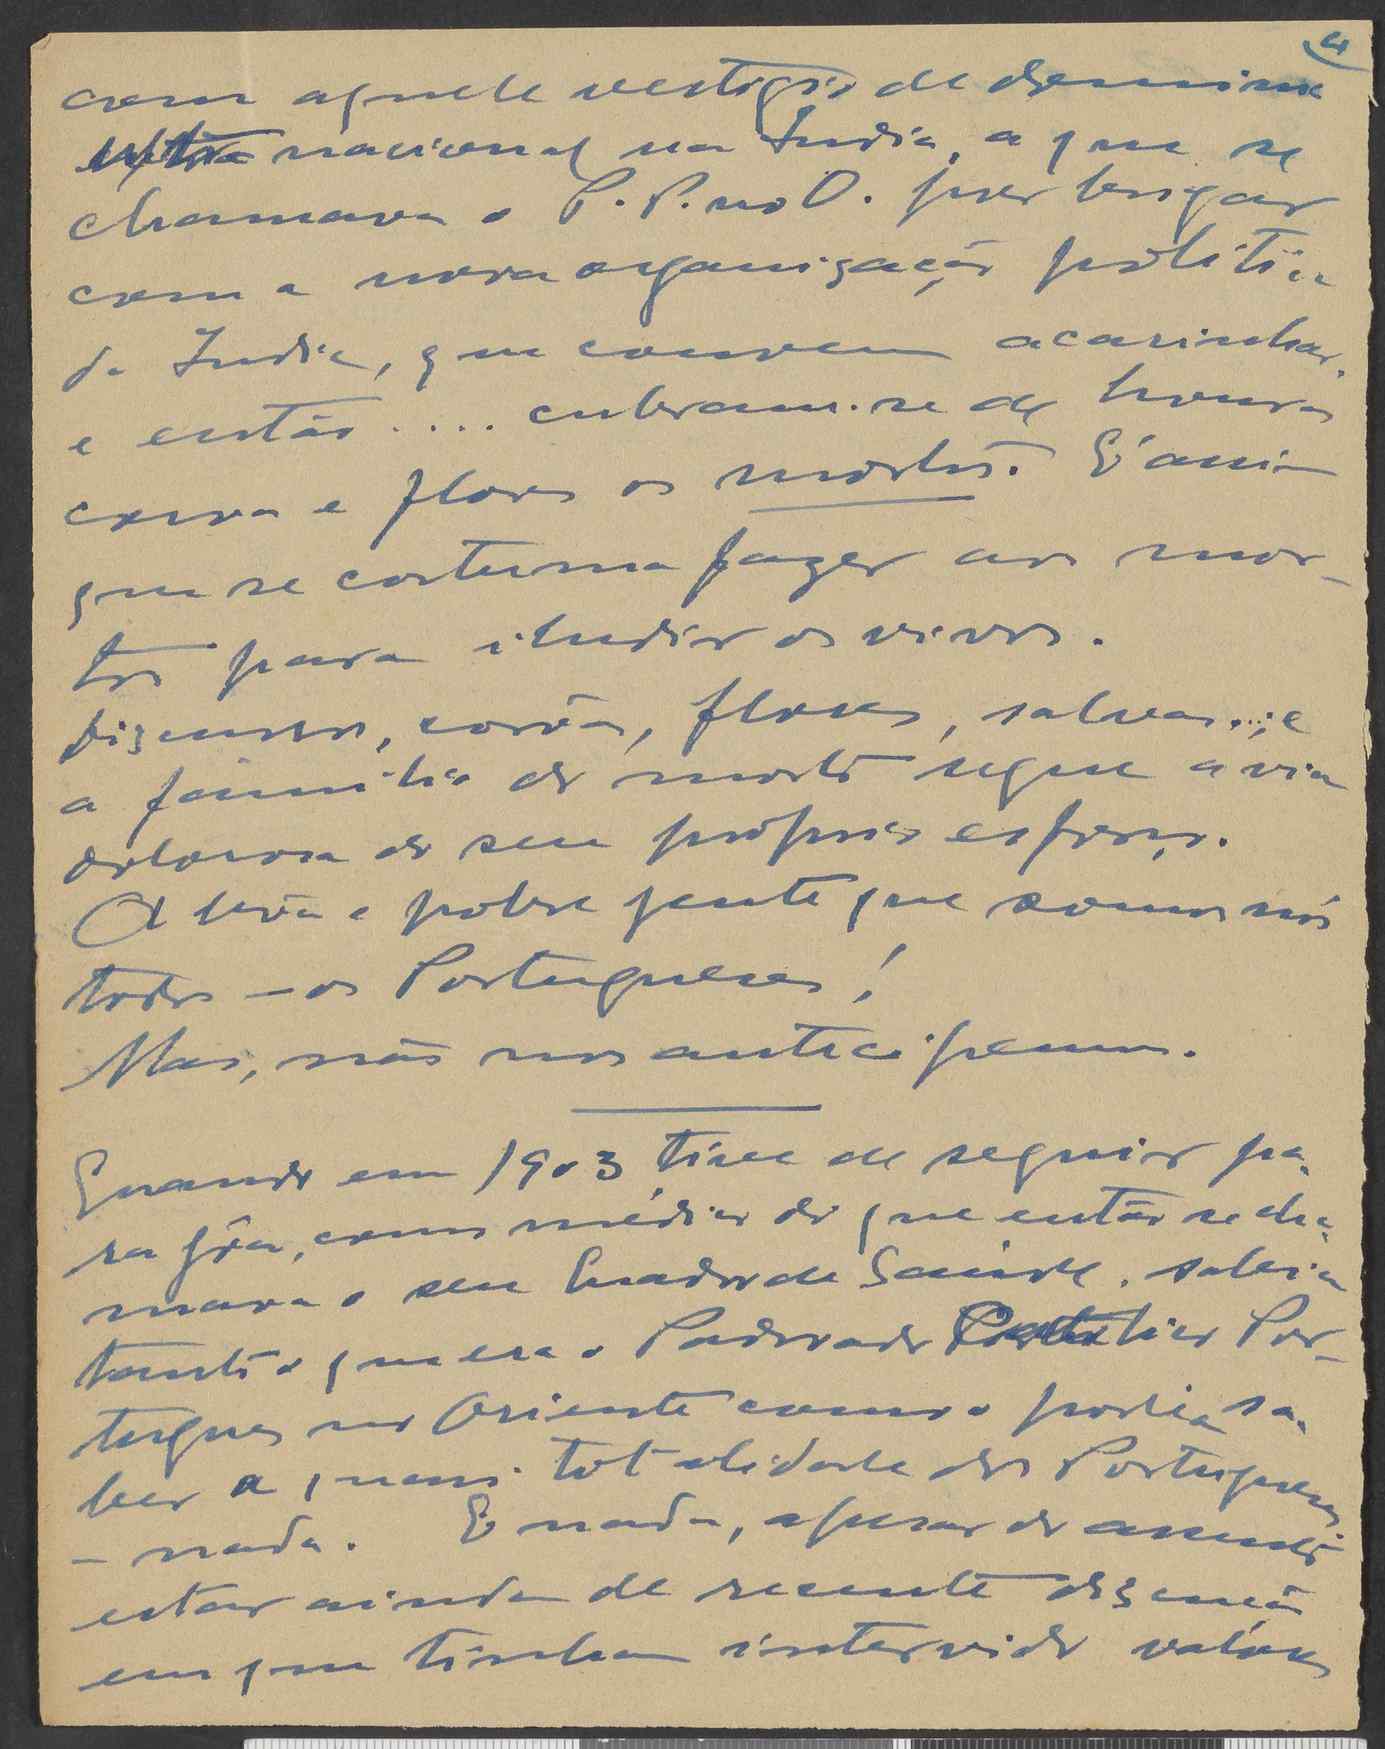 4
com aquele vestigio de dominio
extra nacional na India, a que se
chamava o P. P. no O. por brigar
com a nova organização politica
da India, que convem acarinhar,
e então .... cubram-se de honras
corôa e flores os mortos. É assim
que se costuma fazer aos mor-
tos para iludir os vivos.
Discursos, corôas, flores, salvas...; e
a familia do morto segue a via
dolorosa do seu próprio esforço.
A bôa e pobre gente que somos nós
todos - os Portugueses!
Mas, não nos antecipemos.
Quando em 1903 tive de seguir pa-
ra Gôa, como médico do que então se cha-
mava o seu Quadro de Saúde, sabia
tanto o que era o Padroado Por-
tuguês no Oriente como o podia sa-
ber a quasi totalidade dos Portugueses
- nada. E nada, apesar do assunto
estar ainda de recente discussão
em que tinham intervido valôres